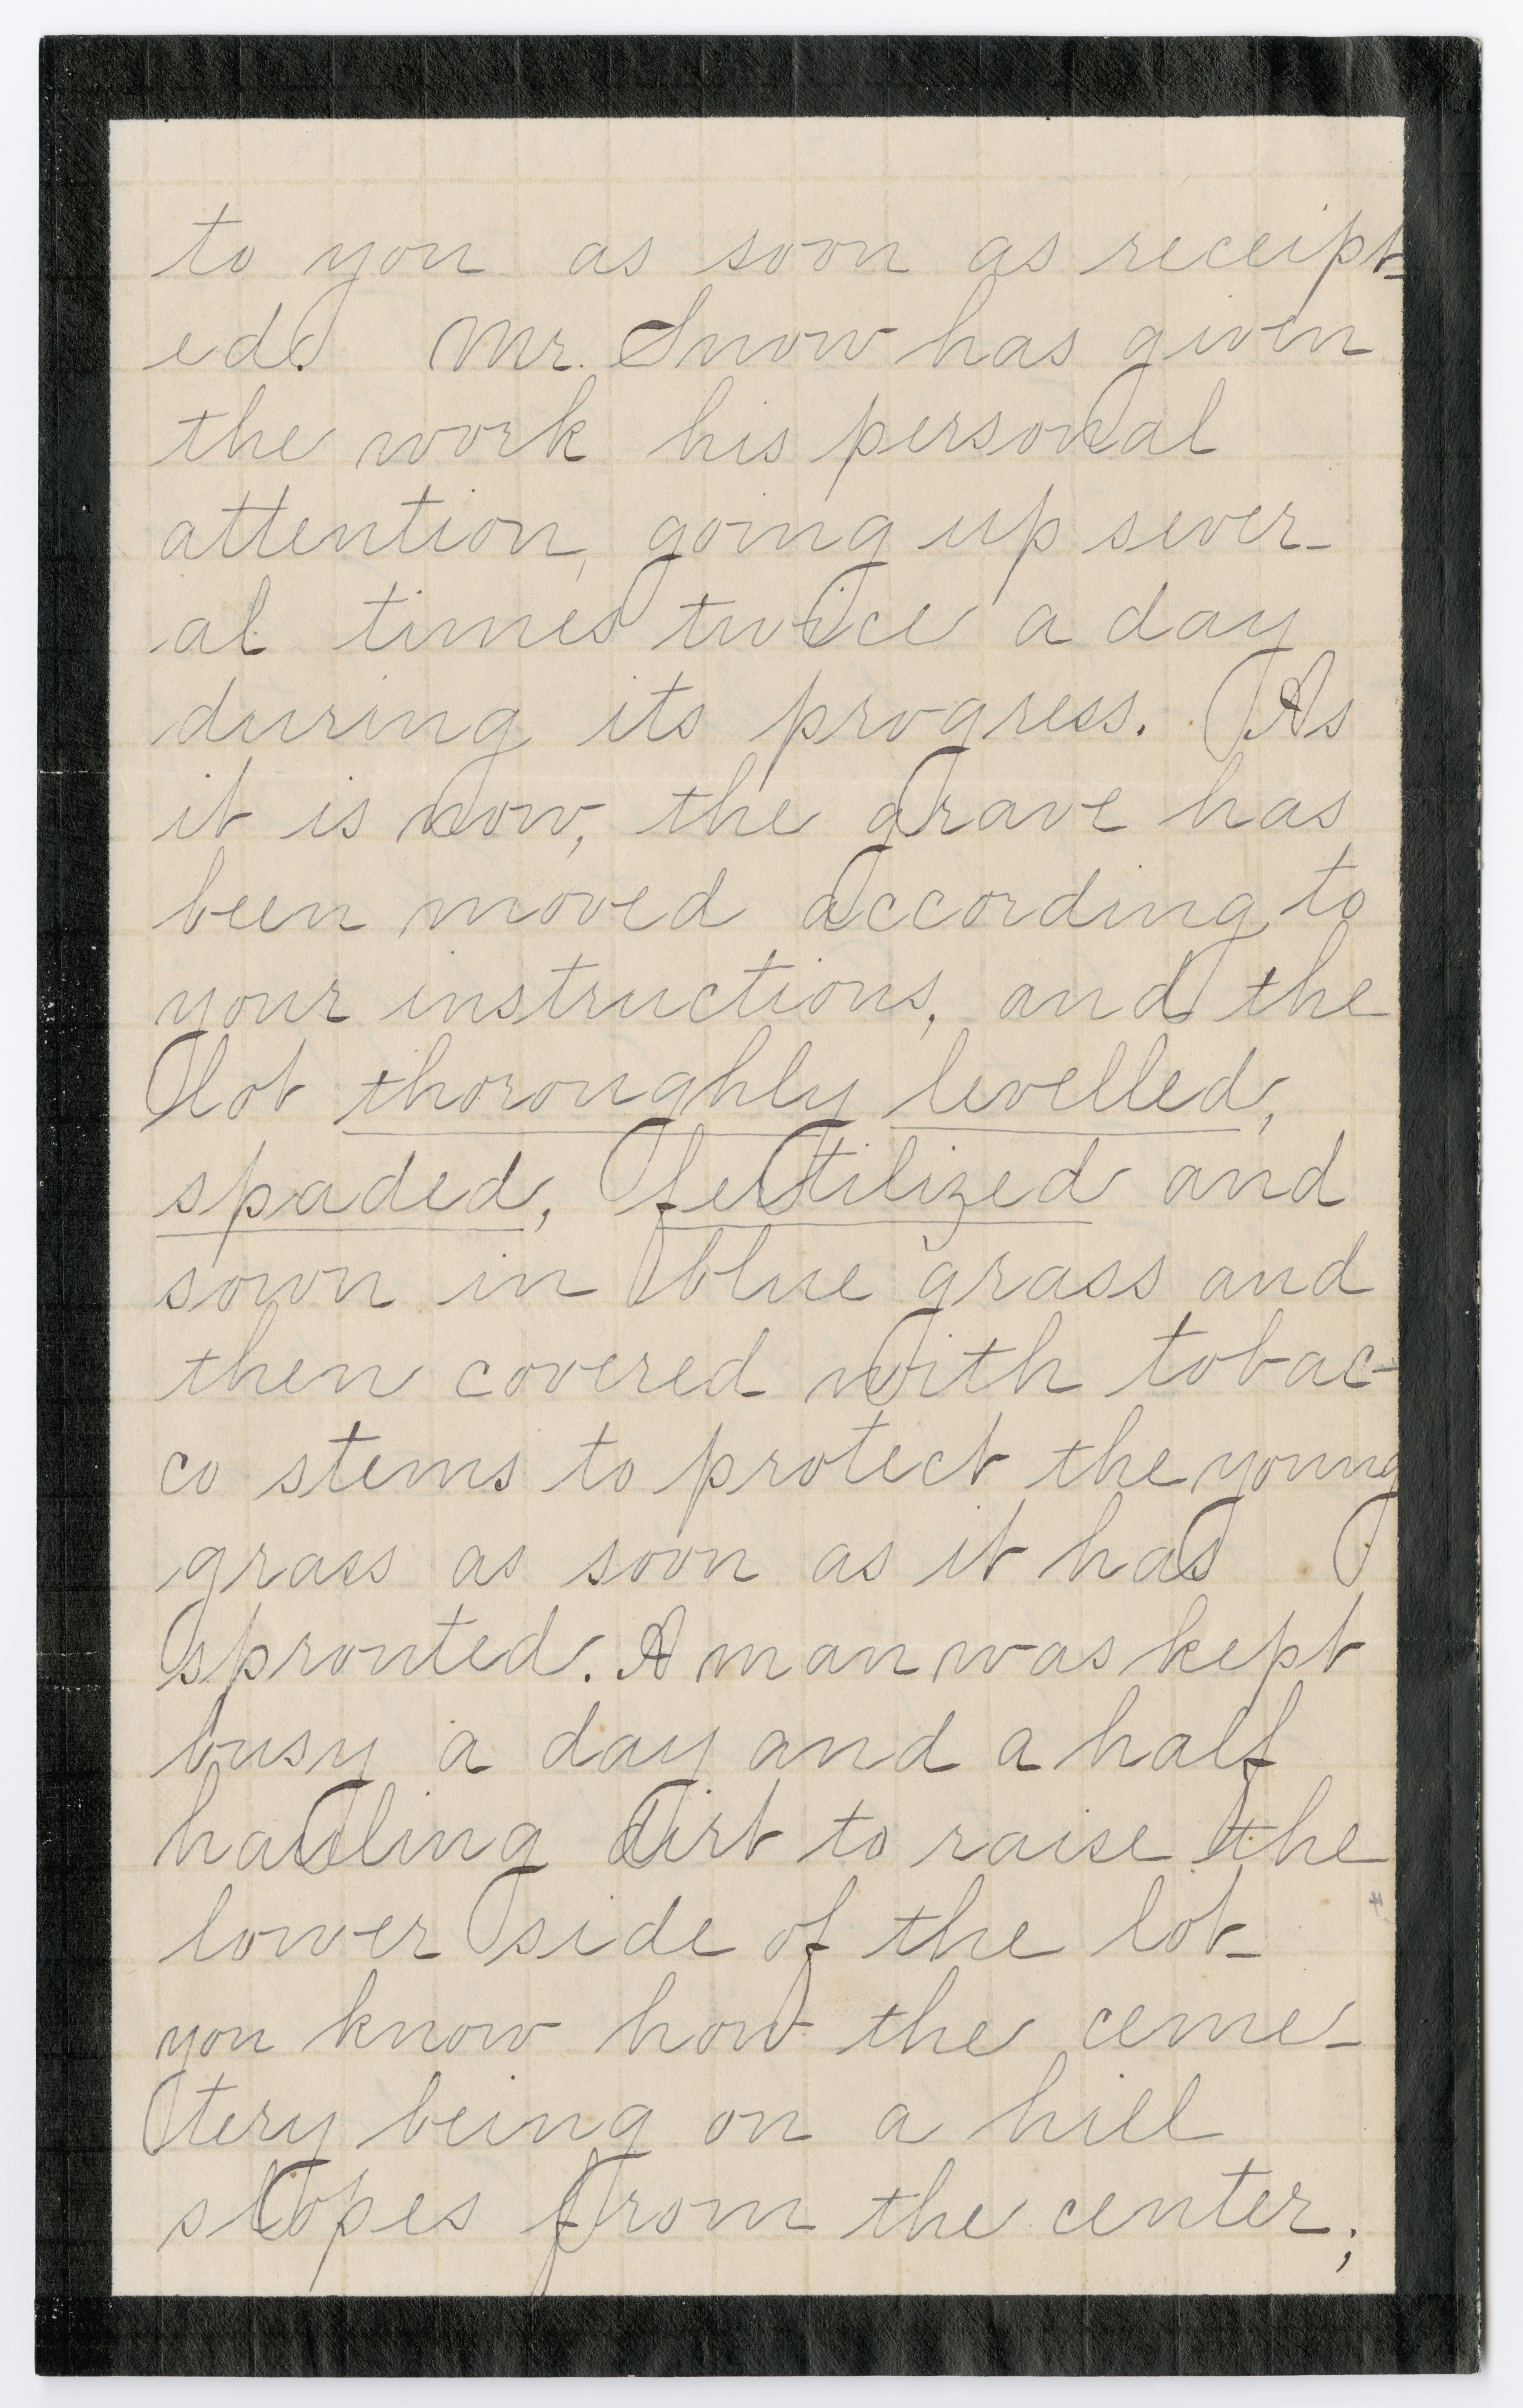 to you as soon as receipt-
ed. Mr. Snow has given
the work his personal
attention, going up sever-
al times twice a day
during its progress. As
it is now, the grave has
been moved according to
your instructions, and the
lot thoroughly levelled,
spaded, fertilized and
sown in blue grass and
then covered with tobac-
co stems to protect the young
grass as soon as it has
sprouted. A man was kept
busy a day and a half
hauling dirt to raise the
lower side of the lot-
you know how the ceme-
tery being on a hill
slopes from the center;